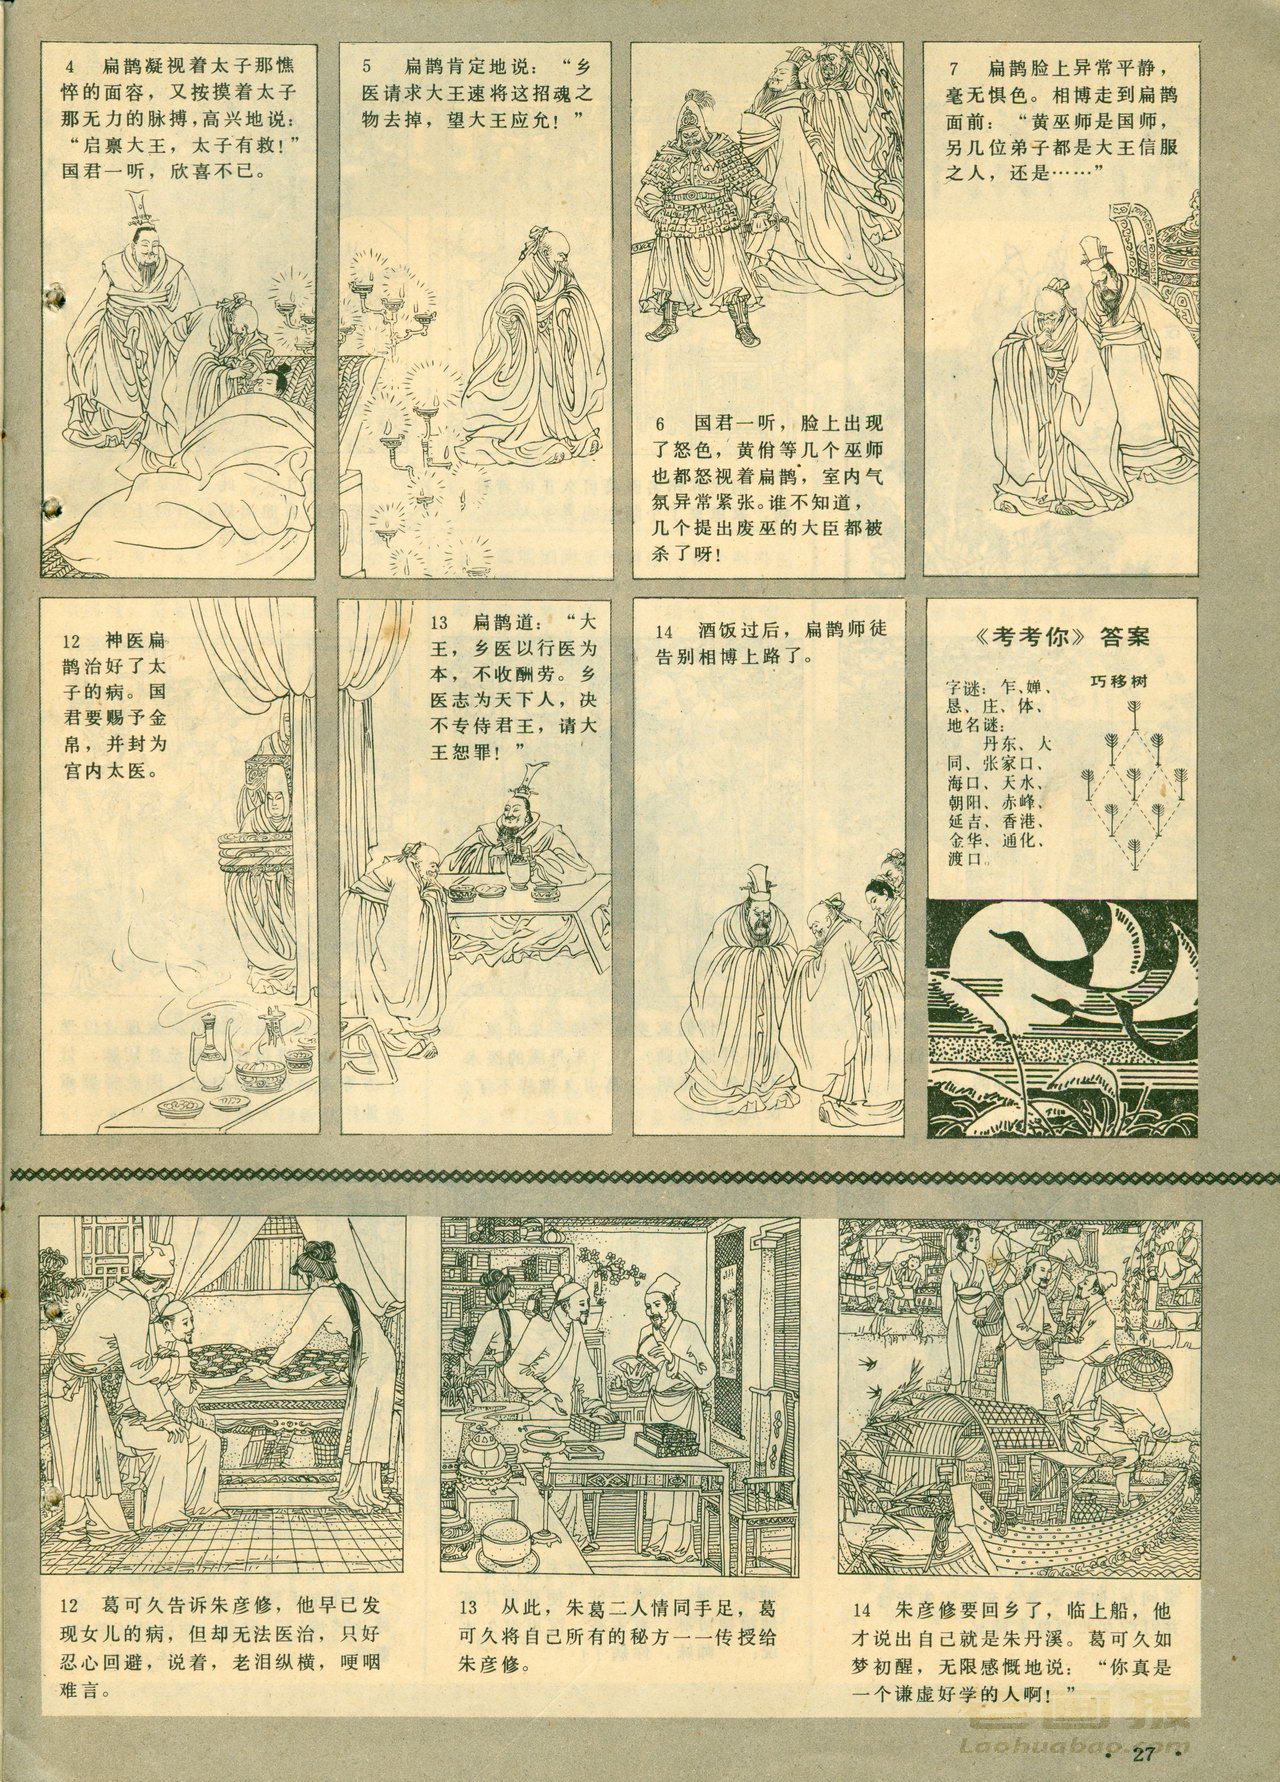 4 扁鹊凝视着太子那憔
悴的面容，又按摸着太子
那无力的脉搏，高兴地说：
“启禀大王，太子有救！”
国君一听，欣喜不已。
5 扁鹊肯定地说：“乡
医请求大王速将这招魂之
物去掉，望大王应允！”
6 国君一听，脸上出现
了怒色，黄佾等几个巫师
也都怒视着扁鹊，室内气
氛异常紧张。谁不知道，
几个提出废巫的大臣都被
杀了呀！
7 扁鹊脸上异常平静，
毫无惧色。相博走到扁鹊
面前：“黄巫师是国师，
另几位弟子都是大王信服
之人，还是……”
12 神医扁
鹊治好了太
子的病。国
君要赐予金
帛，并封为
宫内太医。
13 扁鹊道：“大
王，乡医以行医为
本，不收酬劳。乡
医志为天下人，决
不专侍君王，请大
王恕罪！”
14 酒饭过后，扁鹊师徒
告别相博上路了。
《考考你》答案
字谜：乍、婵、
恳、庄、体、
地名谜：
丹东、大
同、张家口、
海口、天水、
朝阳、赤峰、
延吉、香港、
金华、通化、
渡口。
巧移树
12 葛可久告诉朱彦修，他早已发
现女儿的病，但却无法医治，只好
忍心回避，说着，老泪纵横，哽咽
难言。
13 从此，朱葛二人情同手足，葛
可久将自己所有的秘方一一传授给
朱彦修。
14 朱彦修要回乡了，临上船，他
才说出自己就是朱丹溪。葛可久如
梦初醒，无限感慨地说：“你真是
一个谦虚好学的人啊！”
老画报
Laohuabao.com
· 27 ·